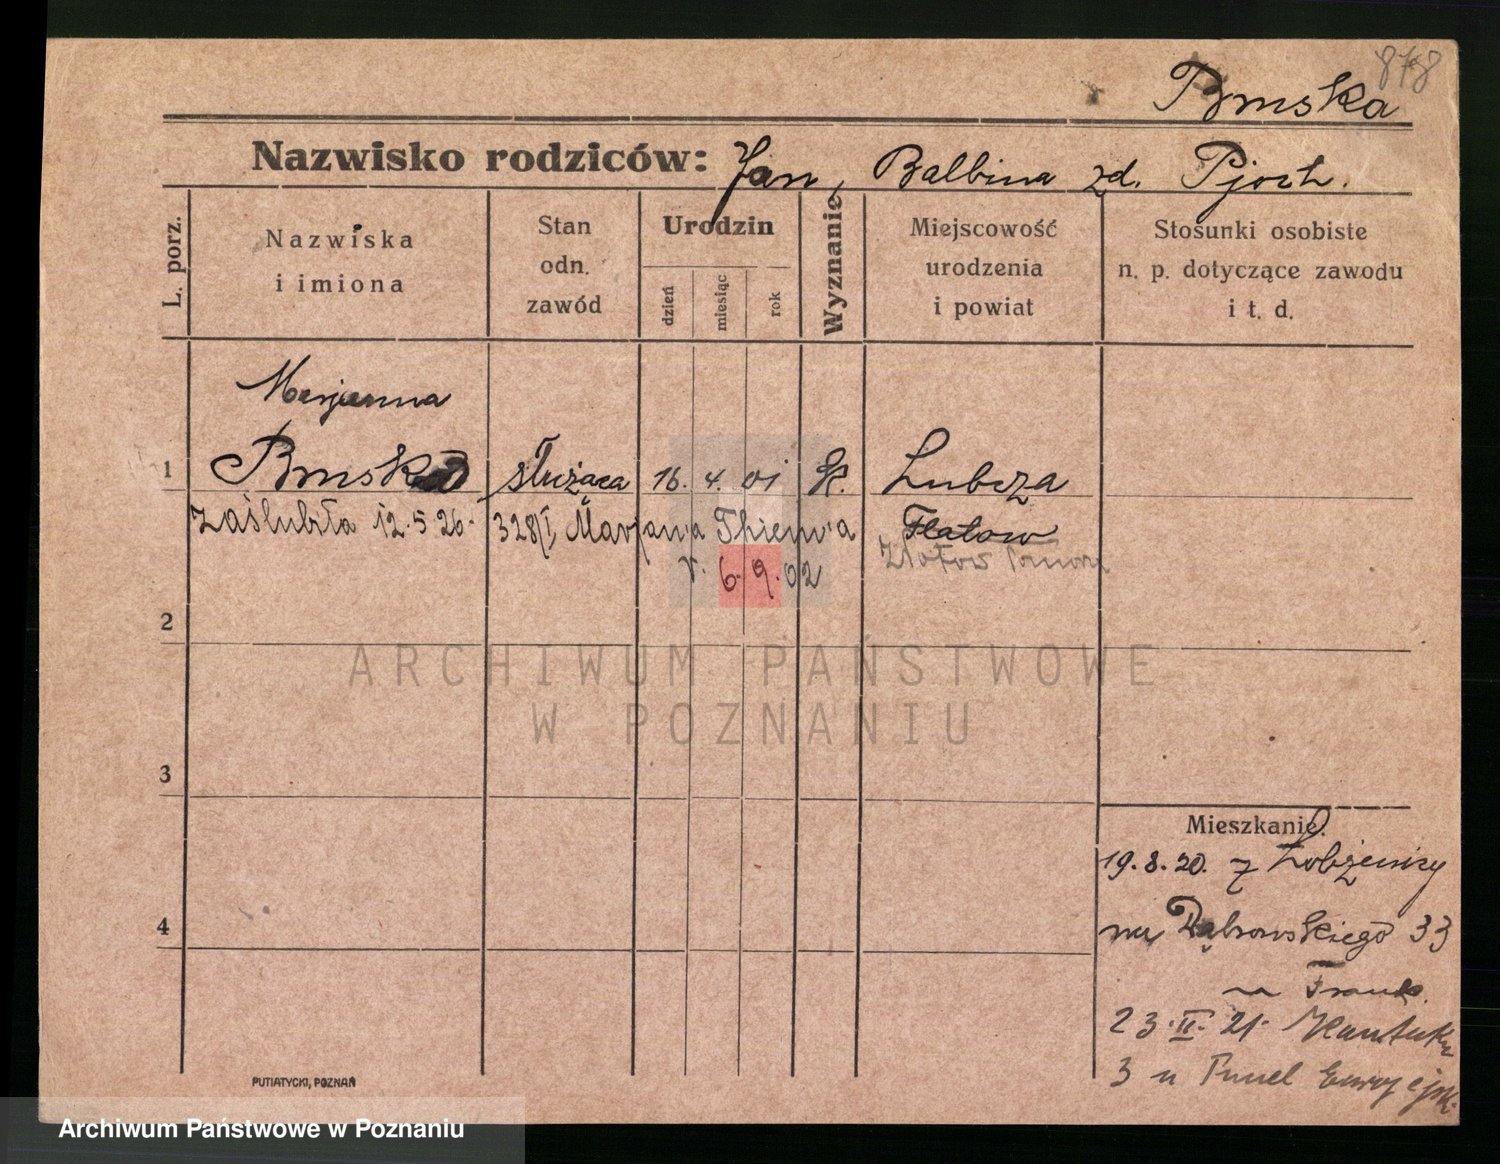 878
Bruska
Nazwisko rodziców: Jan, Balbina zd. Pjoch.
L. porz.
Nazwiska
i imiona
Stan
odn.
zawód
Urodzin
dzień
miesiąc
rok
Wyznanie
Miejscowość
urodzenia
i powiat
Stosunki osobiste
n. p. dotyczące zawodu
i t. d.
Marjanna
1 służąca 16. 4. 01 k. Lubcza
zaślubiła 12.5.26. 328/I Marjana Thiem'a Flatow
r. 6.9.02 Złotow
2
ARCHIWUM PAŃSTWOWE
W POZNANIU
3
Mieszkanie.
19.8.20. z Łobżenicy
4 Dąbrowskiego 33
u
23.II.21.
3 u
PUTIATYCKI, POZNAŃ
Archiwum Państwowe w Poznaniu